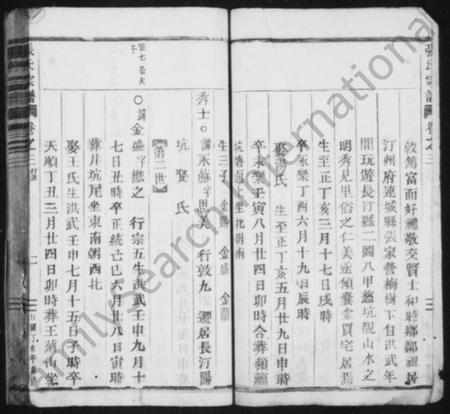 張氏宗譜
卷之三
敦篤富而好禮敬交賢士和睦鄉鄰祖居
汀州府連城縣張家營梅樹下自洪武年
間玩遊長汀縣二圖八甲慈坑靚山水之
明秀見里俗之仁美遂傾囊金買宅居焉
生至正丁亥三月十七日戌時
卒永樂丁酉六月十九日辰時
娶 氏 生至正丁亥五月廿九日申時
卒永樂壬寅八月廿四日寅時合葬
生三子 金 金盛 金
秀士○諱永蘇字思 行敦九 遷居長汀陽
坑 娶 氏
第二世
○諱金盛字懋之 行宗五生洪武壬申九月十
七日丑時卒正統己巳六月廿八日寅時
葬井坑尾坐東南朝西北
娶王氏生洪武壬申七月十五日子時卒
天順丁丑三月廿四日卯時葬王 山坐
張氏宗譜
卷之三
FamilySearch International